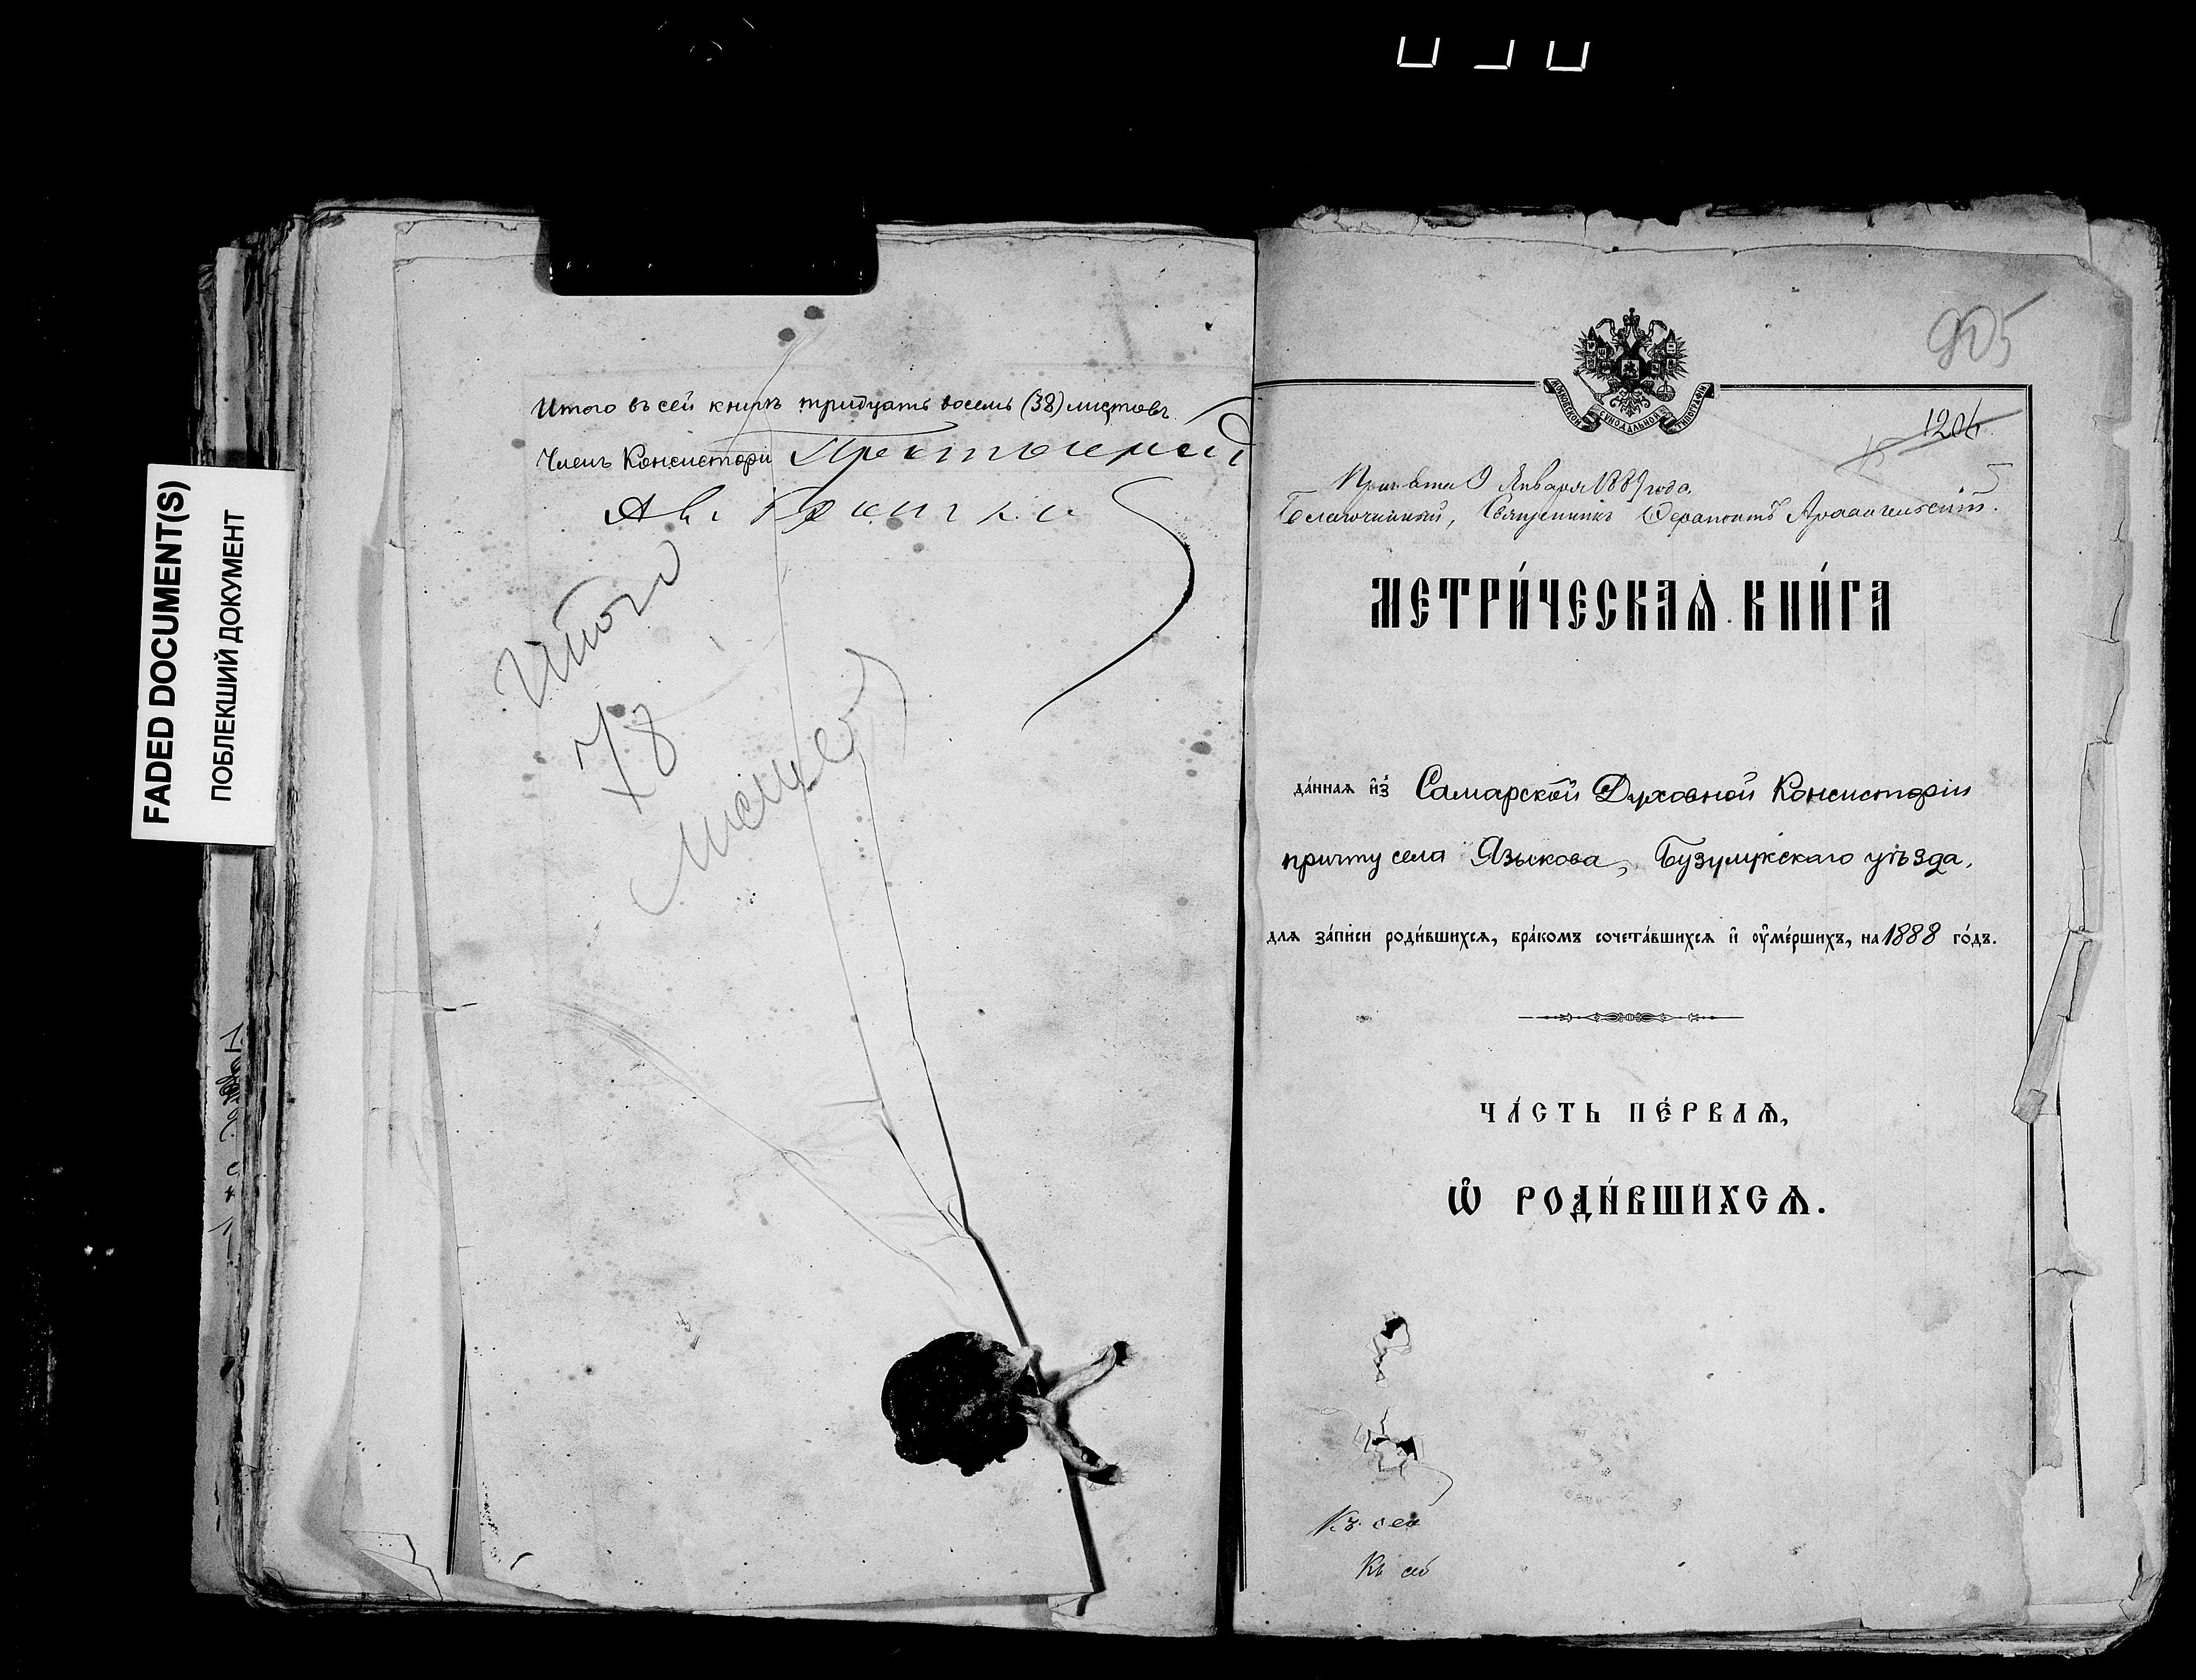 FADED DOCUMENT(S)
ПОБЛЕКШИЙ ДОКУМЕНТ
Итого въ сей книгѣ тридцать восемь (38) листовъ
Членъ Консисторіи Протоіерей
Итого
78
905
МОСКОВСКОЙ СѴНОДАЛЬНОЙ ТИПОГРАФІИ
1206
Января 1889 года.
Благочинный, Священникъ Ѳерапонтъ Архангельскій.
МЕТРИ́ЧЕСКАѦ КНИ́ГА
да́ннаѧ и҆з̾ Самарской Духовной Консисторіи
причту села Языкова, Бузулукскаго уѣзда,
длѧ за́писи роди́вшихсѧ, бра́комъ сочета́вшихсѧ и҆ ᲂу҆ме́ршихъ, на 1888 го́дъ.
ЧА́СТЬ ПЕ́РВАѦ,
Ѽ РОДИ́ВШИХСѦ.
Къ сей
Къ сей